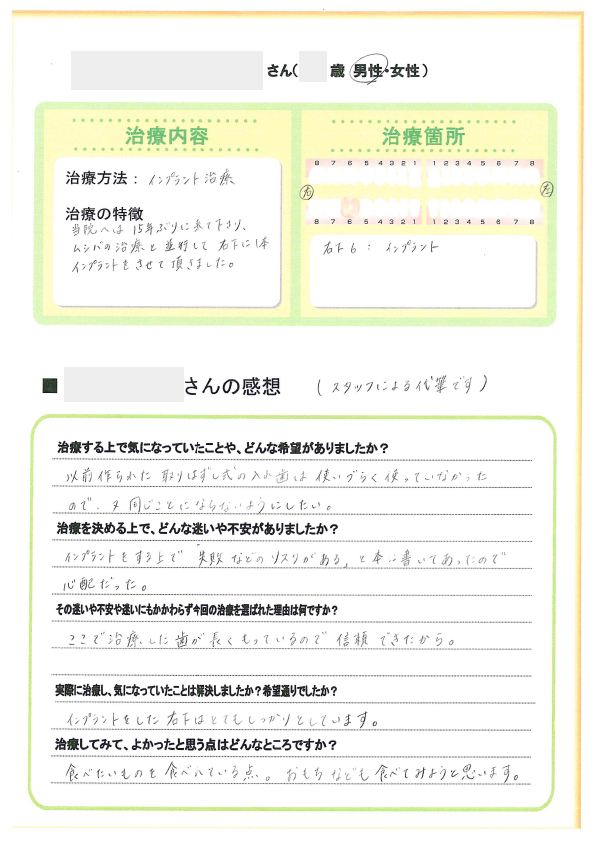 さん( 歳 男性・女性)
治療内容
治療方法：インプラント治療
治療の特徴
当院へは15年ぶりに来て下さり、
ムシバの治療と並行して右下に1本
インプラントをさせて頂きました。
治療箇所
8 7 6 5 4 3 2 1 1 2 3 4 5 6 7 8
右 左
8 7 6 5 4 3 2 1 1 2 3 4 5 6 7 8
右下6：インプラント
■ さんの感想 (スタッフによる代筆です)
治療する上で気になっていたことや、どんな希望がありましたか？
以前作られた取りはずし式の入れ歯は使いづらく使っていなかった
ので、又同じことにならないようにしたい。
治療を決める上で、どんな迷いや不安がありましたか？
インプラントをする上で「失敗などのリスクがある」と本に書いてあったので
心配だった。
その迷いや不安や迷いにもかかわらず今回の治療を選ばれた理由は何ですか？
ここで治療した歯が長くもっているので信頼できたから。
実際に治療し、気になっていたことは解決しましたか？希望通りでしたか？
インプラントをした右下はとてもしっかりとしています。
治療してみて、よかったと思う点はどんなところですか？
食べたいものを食べている点。おもちなども食べてみようと思います。